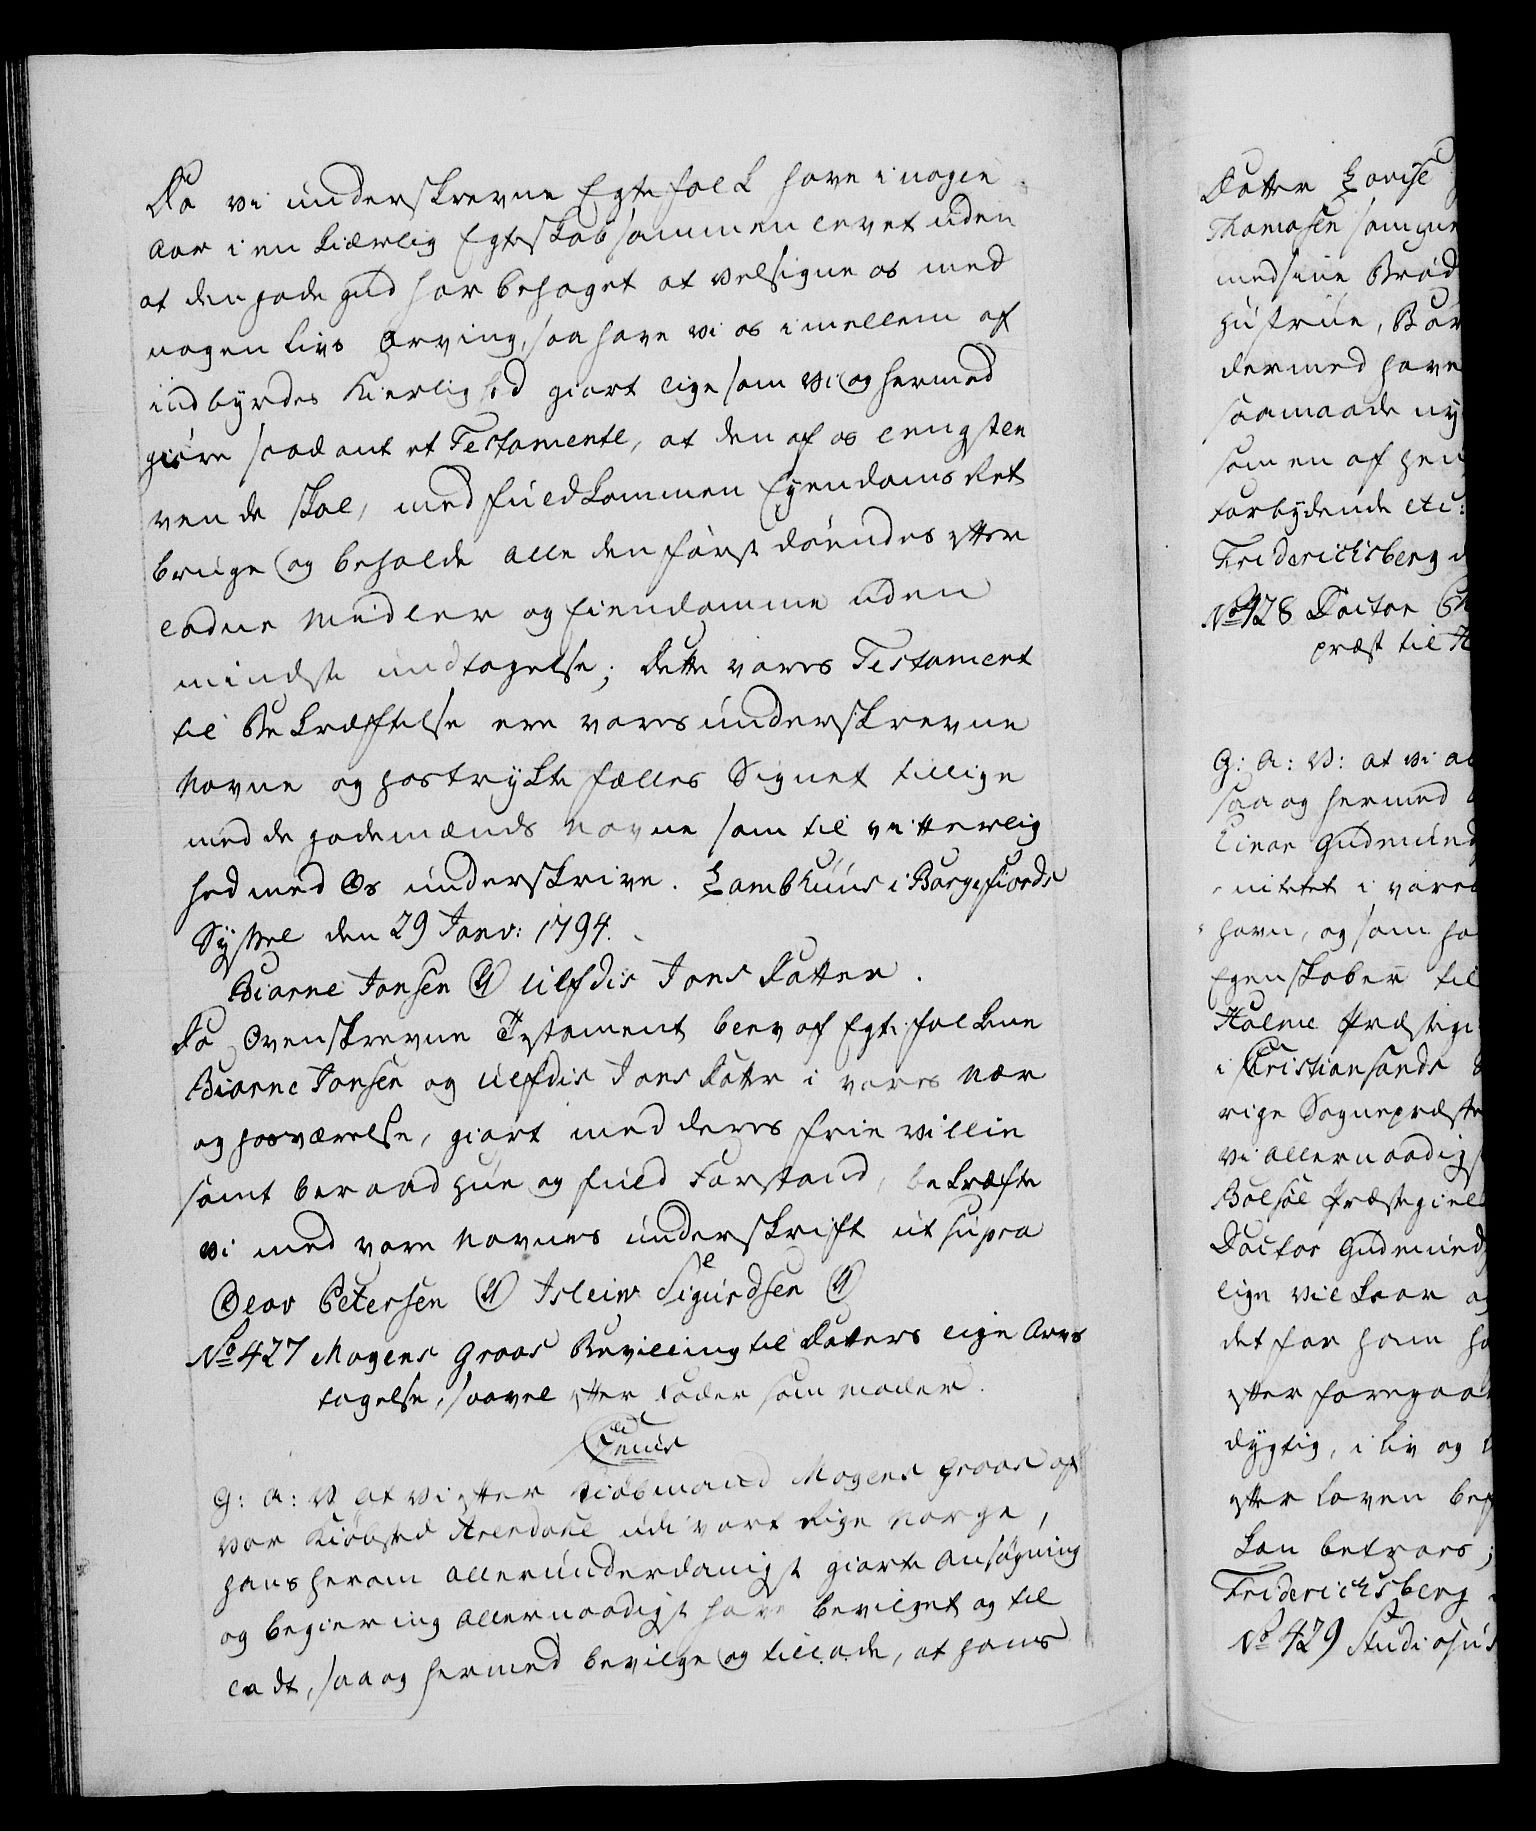 Da vi underskrevne Egtefolk have i nogen
Aar i en kiærlig Egteskab sammen levet uden
at den gode Gud har behaget at velsigne os med
nogen Livs Arving, saa have vi os imellem af
indbyrdes Kierlighed giort ligesom vi og hermed
giøre saadant et Testamente, at den af os lengstle
vende skal, med fuldkommen Eyendoms Ret
bruge og beholde alle den først døendes efter
ladne Midler og Eiendomme uden
mindste undtagelse; dette vores Testament
til Bekræftelse ere vores underskrevne
Navne og hostrykte fælles Signet tillige
med de godemænds Navne som til vitterlig
hed med Os underskrive. Lambhuus i Borgefiords
Syssel den 29 Janv: 1794.
Biarne Jonsen Ulfdis Jons Datter.
Da Ovenskrevne Testament blev af Egtefolkene
Biarne Jonsen og Ulfdis Jons Datter i vores Nær
og hosværelse, giort med deres frie villie
samt beraad hue og fuld Forstand, bekræfte
vi med vore Navnes underskrift ut supra
Olav Petersen Isleiv Sigurdsen
No 427 Mogens Groos Bevilling til Datters lige Arvs
tagelse, saavel efter Fader som Moder.
G: A: V at vi efter Kiøbmand Mogens Groos af
vor Kiøbsted Arendahl udi vort Rige Norge,
hans herom allerunderdanigst giorte Ansøgning
og begiering allernaadigst have bevilget og til
ladt, saa og hermed bevilge og tillade, at hans
Datter Lovise
Thomasen
med sine Brød
Hustrue, Bør
dermed have
saamaade ny
som en af hen
Forbydende etc:
Friderichsberg d
No 428 Doctor
præst til
G: A: V: at vi al
saa og hermed
Einar Gudmund
nitetet i vores
havn, og som ha
Egenskaber til
Holme Præstegi
i Christiansands
rige Sognepræste
vi allernaadigs
Bolsøe Præstegield
Doctor Gudmund
lige vilkaar og
det for ham ha
efter foregaa
dygtig, i Liv og
efter Loven bef
kan betroes;
Friderichsberg
No 429 Studiosus